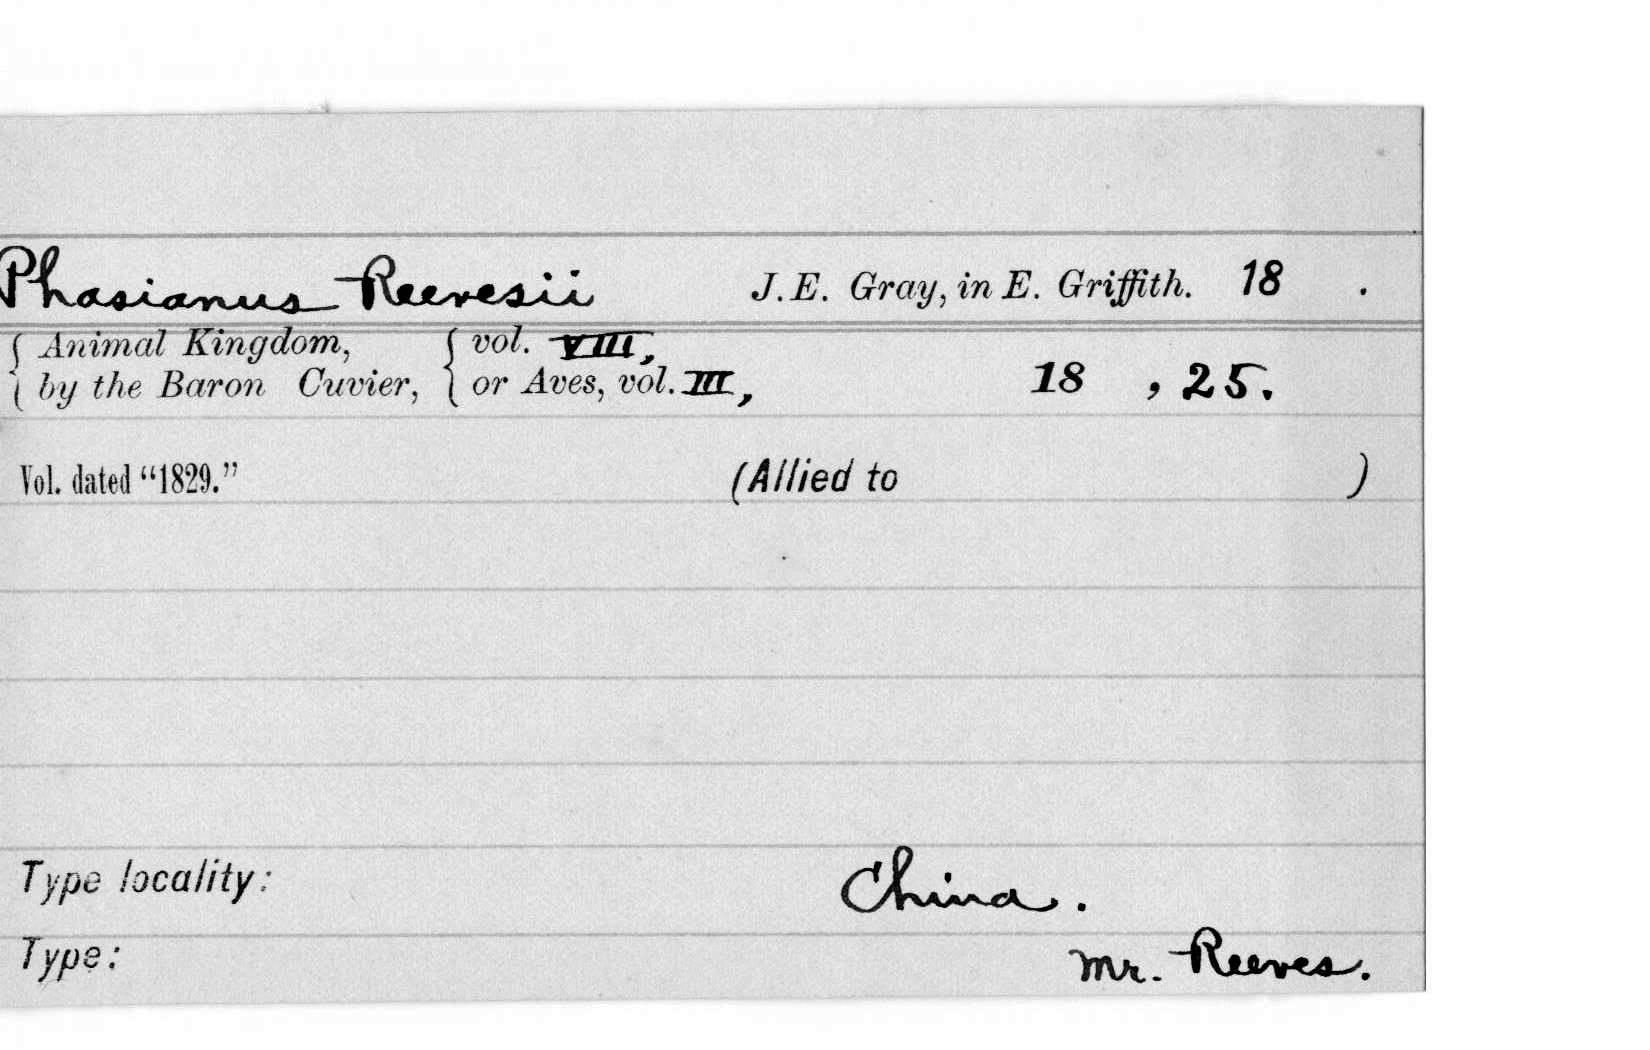 Phasianus Reevesii J. E. Gray, in E. Griffith. 18 .
{ Animal Kingdom, { vol. VIII,
{ by the Baron Cuvier, { or Aves, vol. III, 18 , 25.
Vol. dated “1829.” (Allied to )
Type locality: China.
Type: Mr. Reeves.